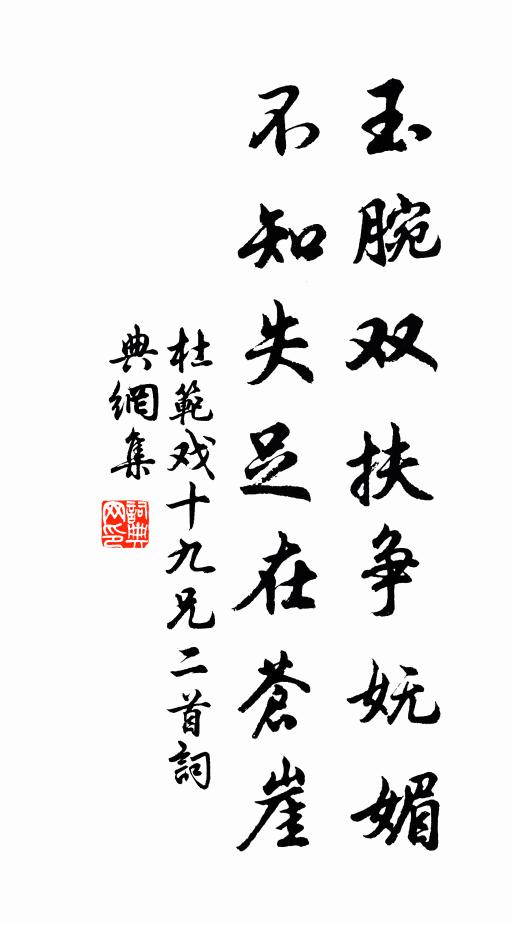 玉腕双扶争妩媚
不知失足在蒼崖
杜範戏十九兄二首詞
典網集
詞典
网印